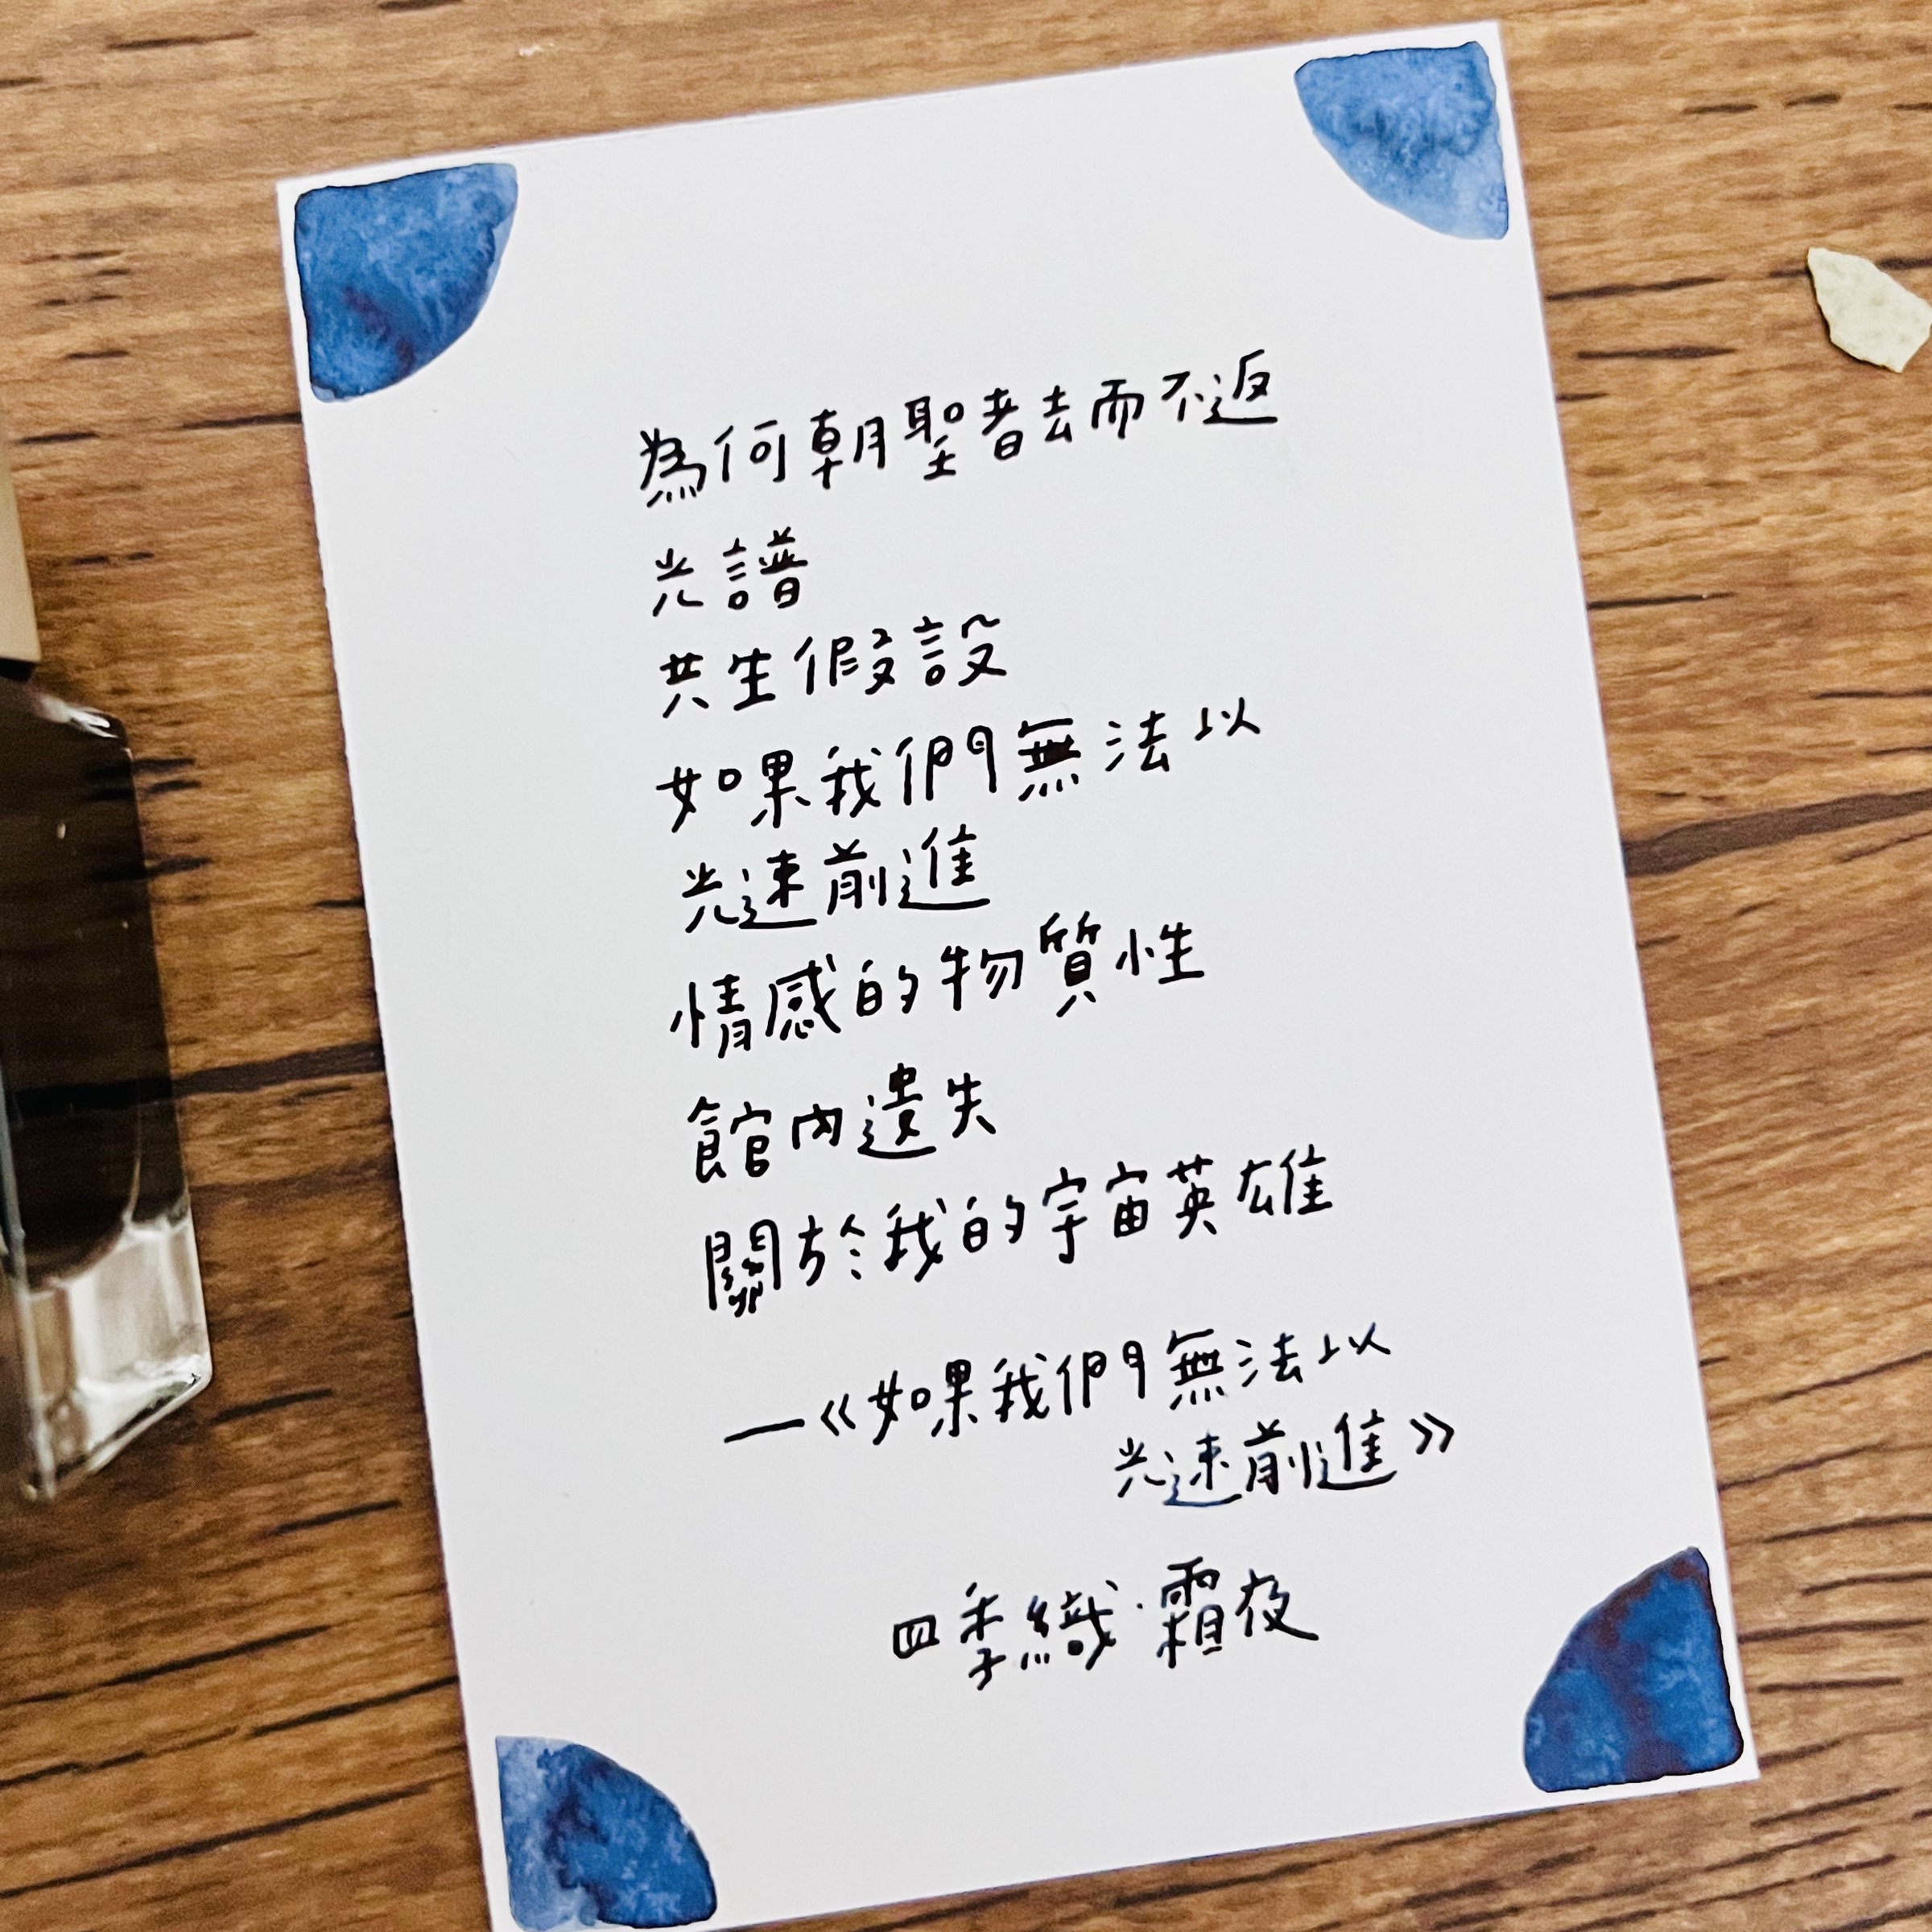 為何朝聖者去而不返
光譜
共生假設
如果我們無法以
光速前進
情感的物質性
館內遺失
關於我的宇宙英雄
—《如果我們無法以
光速前進》
四季織·霜夜